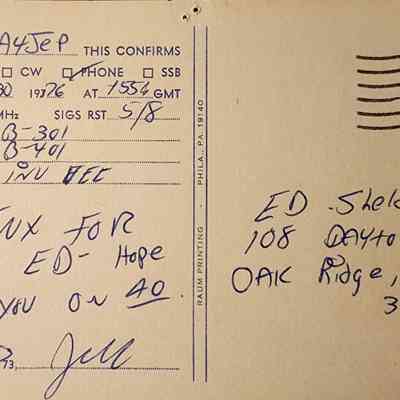 A4JEP THIS CONFIRMS
□ CW □ PHONE □ SSB
30 1976 AT 1554 GMT
MHz SIGS RST 5/8
B-301
B-401
INV VEE
NX FOR
ED- Hope
YOU ON 40.
73, Jeff
RAUM PRINTING - PHILA., PA. 19140
ED Shel
108 DAYTO
OAK Ridge,
3